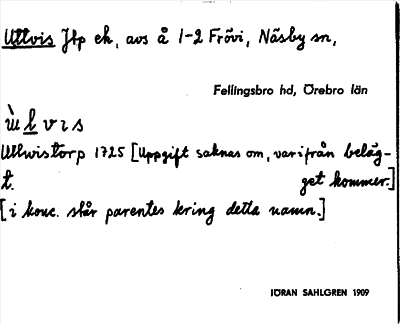 Ullvis Jtp ek, avs å 1-2 Frövi, Näsby sn,
Fellingsbro hd, Örebro län
ùl v ı s
Ullwistorp 1725 [Uppgift saknas om, varifrån beläg-
t. get kommer.]
[i konc. står parentes kring detta namn.]
JÖRAN SAHLGREN 1909